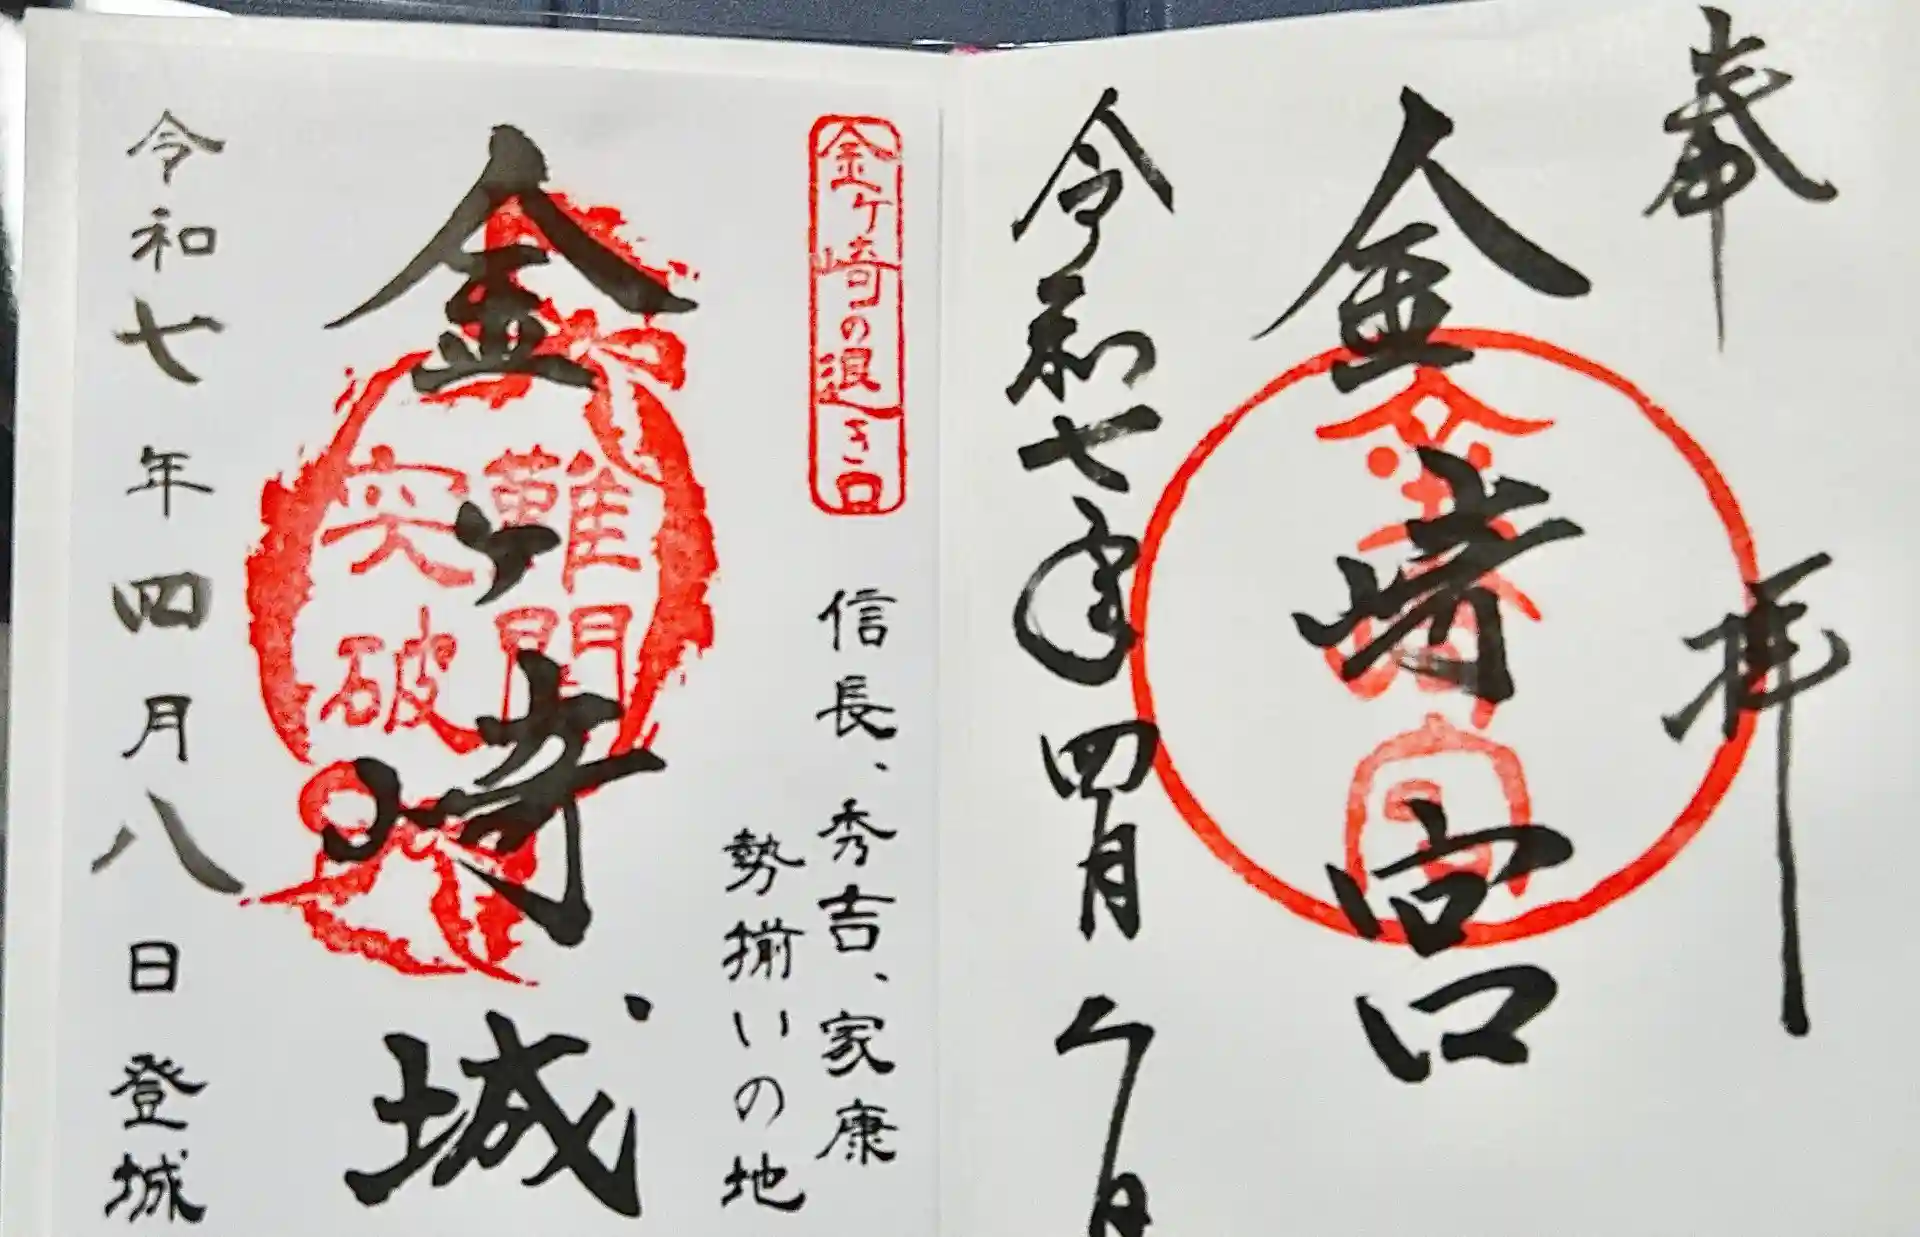 奉拝
金崎宮
金崎宮
令和七年四月八日
金ケ崎の退き口
信長、秀吉、家康
勢揃いの地
金ヶ崎城
難関
突破
令和七年四月八日登城